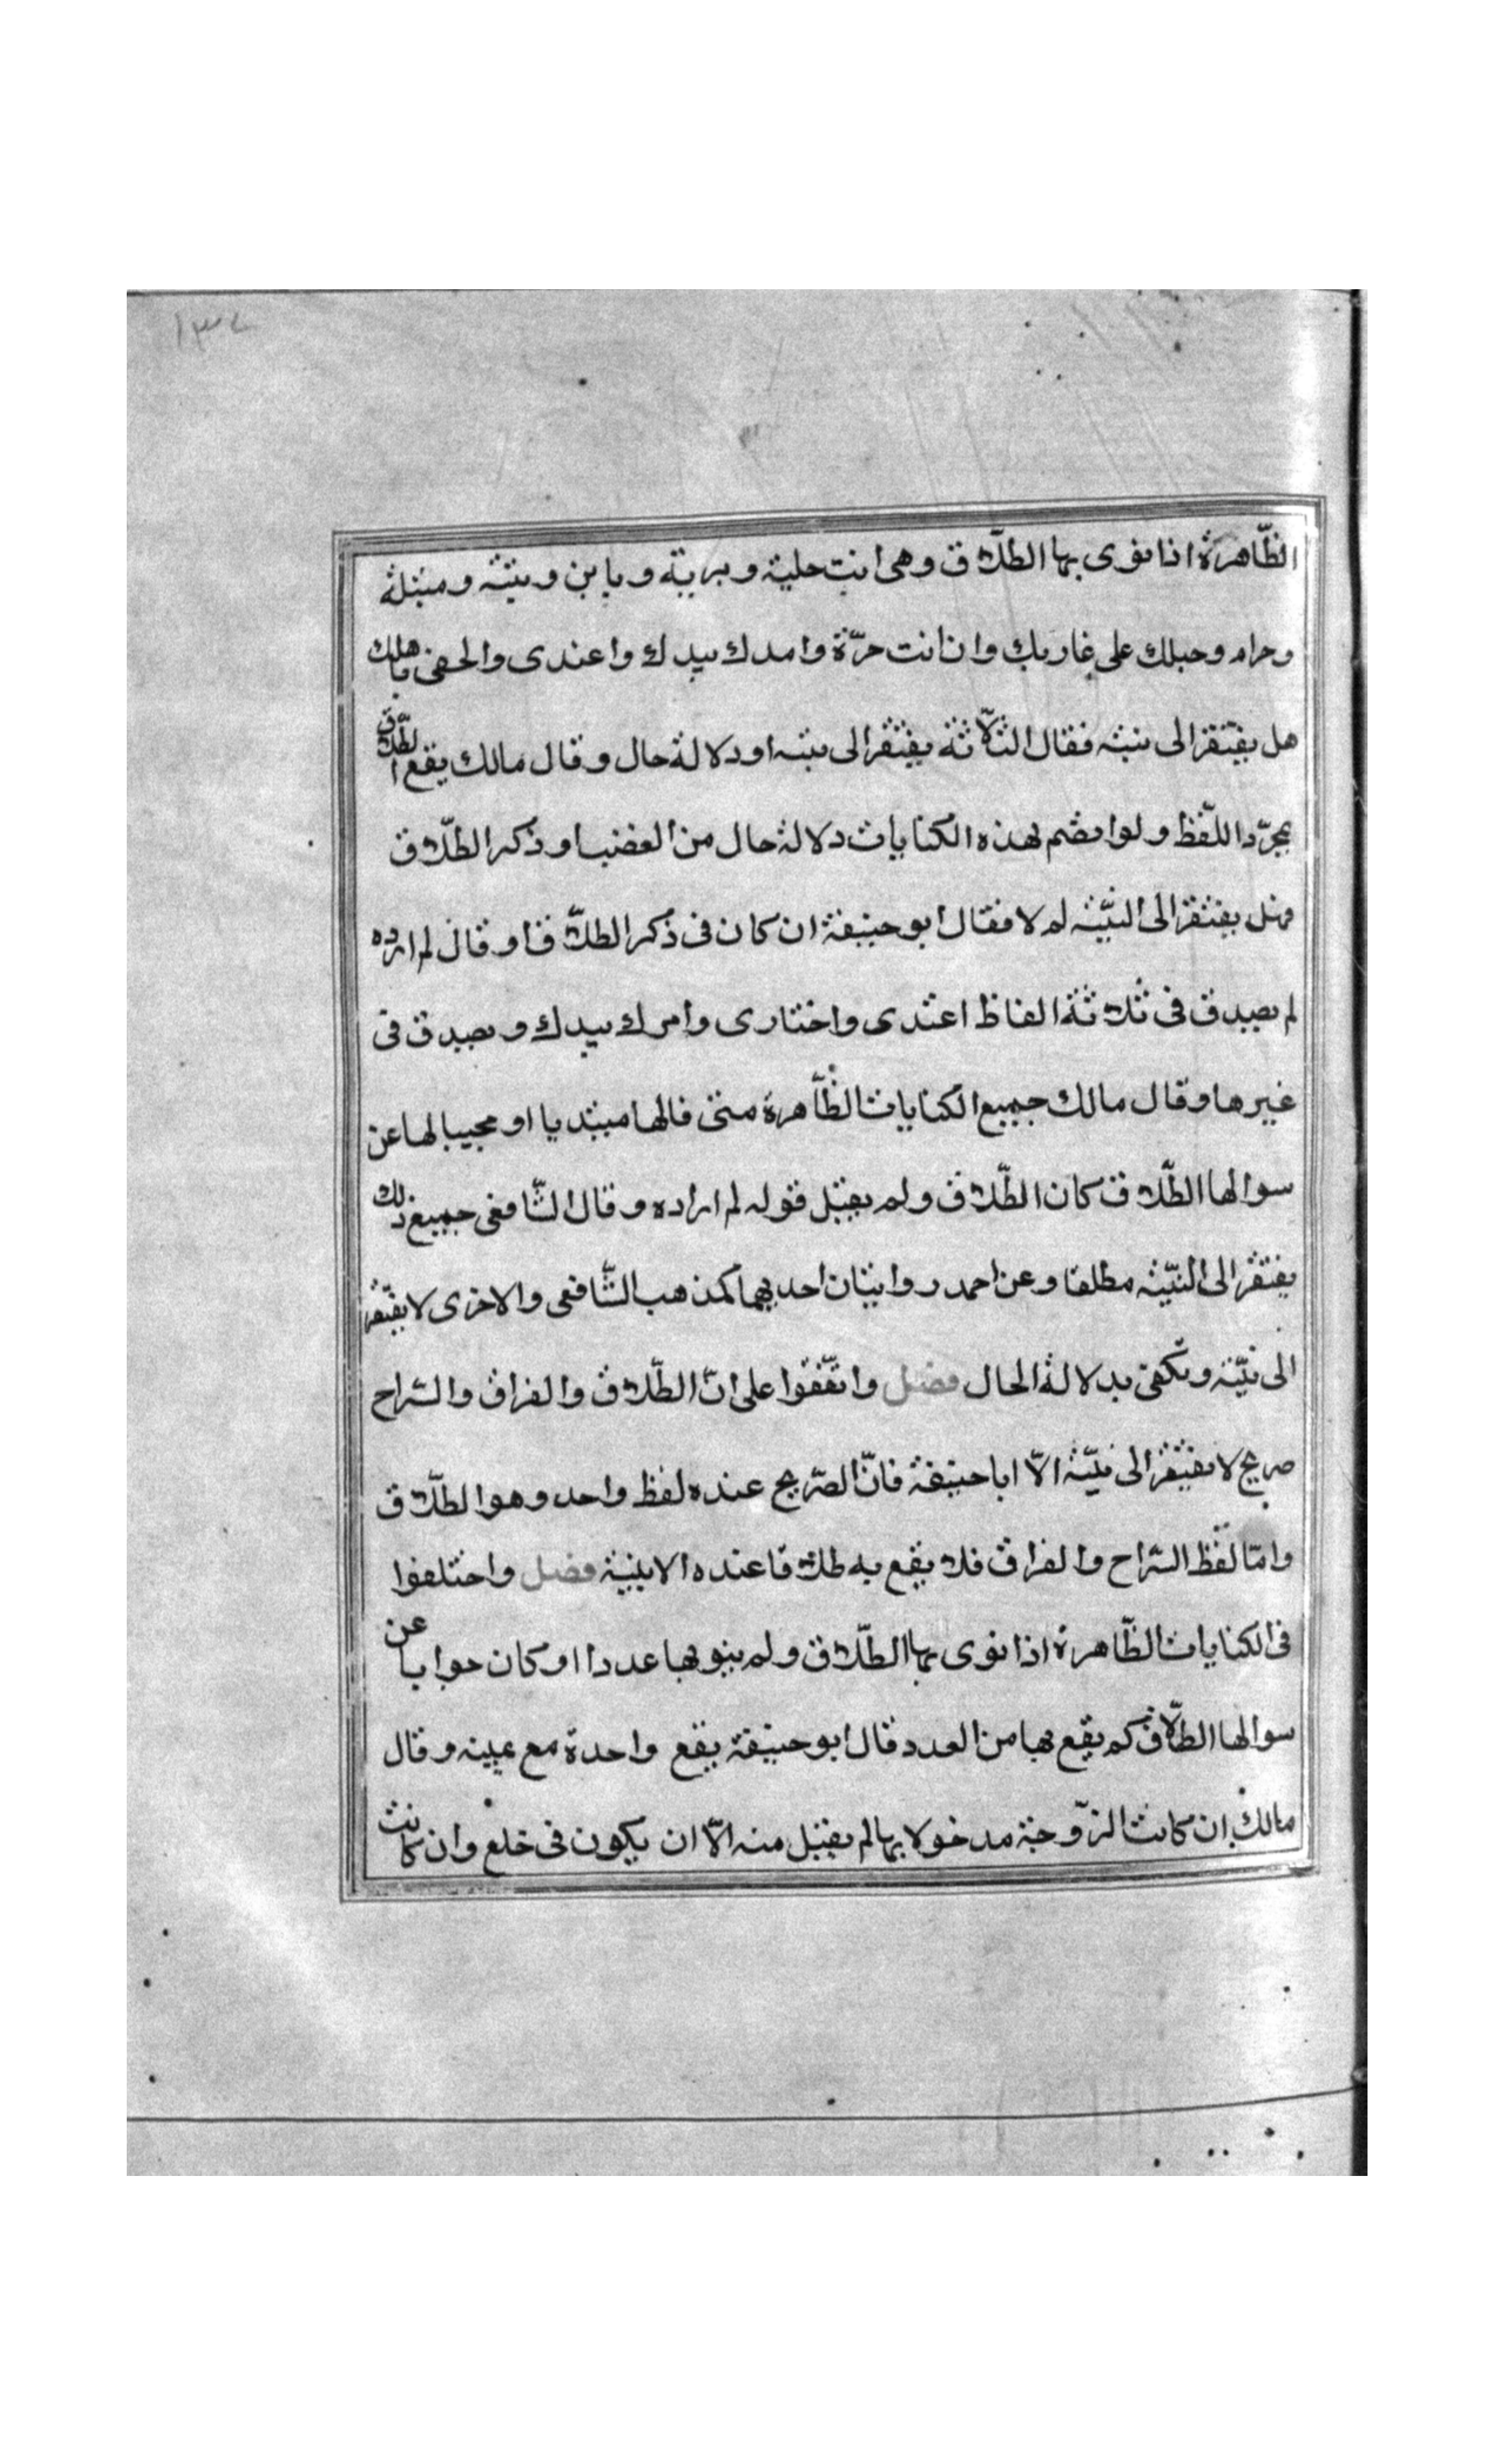 ١٣٧
الظّاهرة اذا نوى بها الطلّاق وهى انت خلية وبرية وباين وبتة وبتلة
وحرام وحبلك على غاربك وان انت حرّة وامرك بيدك واعتدى والحقى باهلك
هل يفتقر الى نية فقال الثلّاثة يفتقر الى نية او دلالة حال وقال مالك يقع الطّلاق
بمجرّد اللّفظ ولو انضم لهذه الكنايات دلالة حال من الغضب او ذكر الطلّاق
فهل يفتقر الى النيّة ام لا فقال ابو حنيفة ان كان فى ذكر الطلّاق او قال لم ارده
لم يصدق فى ثلاثة الفاظ اعتدى واختارى وامرك بيدك ويصدق فى
غيرها وقال مالك جميع الكنايات الظّاهرة متى قالها مبتديا او مجيبا لها عن
سوالها الطّلاق كان الطّلاق ولم يقبل قوله لم اراده وقال الشّافعى جميع ذلك
يفتقر الى النيّة مطلقا وعن احمد روايتان احديهما كمذهب الشّافعى والاخرى لا يفتقر
الى نيّة وتكفى بدلالة الحال فصل واتفّقوا على انّ الطّلاق والفراق والسّراح
صريح لا يفتقر الى نيّة الّا ابا حنيفة فانّ الصّريح عنده لفظ واحد وهو الطلّاق
وامّا لفظ السّراح والفراق فلا يقع به طلاقا عنده الا بنية فصل واختلفوا
فى الكنايات الظّاهرة اذا نوى بها الطّلاق ولم ينو بها عددا او كان جوابا عن
سوالها الطلّاق كم يقع بها من العدد قال ابو حنيفة يقع واحدة مع يمينه وقال
مالك ان كانت الزّوجة مدخولا بها لم يقبل منه الّا ان يكون فى خلع وان كانت